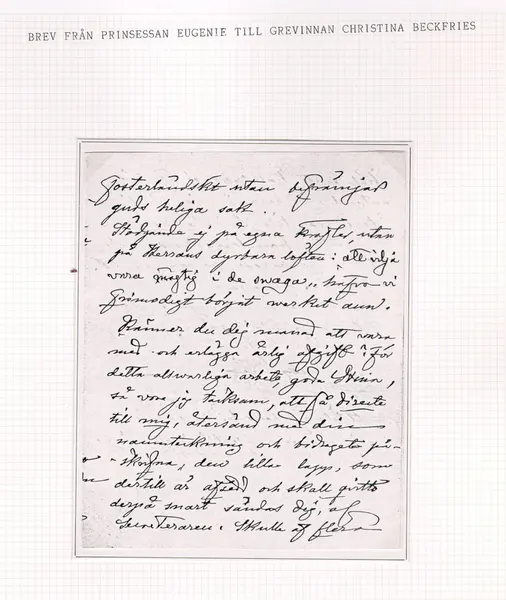 BREV FRÅN PRINSESSAN EUGENIE TILL GREVINNAN CHRISTINA BECKFRIES
fosterländskt utan befrämjar
guds heliga sak.
Stödjande ej på egna krafter, utan
på Herrans dyrbara löften: att vilja
vara mägtig i de swaga, hafva vi
frimodigt börjat werket ann.
Känner du dig manad att vara
med och erlägga årlig afgift för
detta allvarliga arbete, goda Stina,
så vore jag tacksam, att få direkte
till mig, återsänd med din
namnteckning och bidragets på-
skrifna, den lilla lapp, som
dertill är afsedd och skall qvitto
derpå snart sändas dig, af
Secreteraren. Skulle af flera